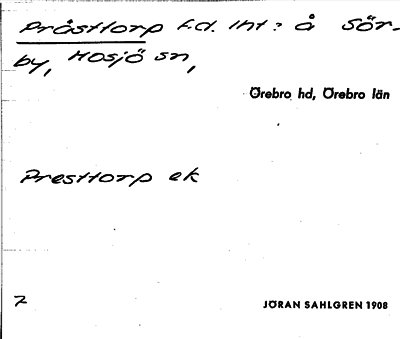 Prästtorp f.d. int: å Sör-
by, Mosjö sn,
Örebro hd, Örebro län
Presttorp ek
7
JÖRAN SAHLGREN 1908